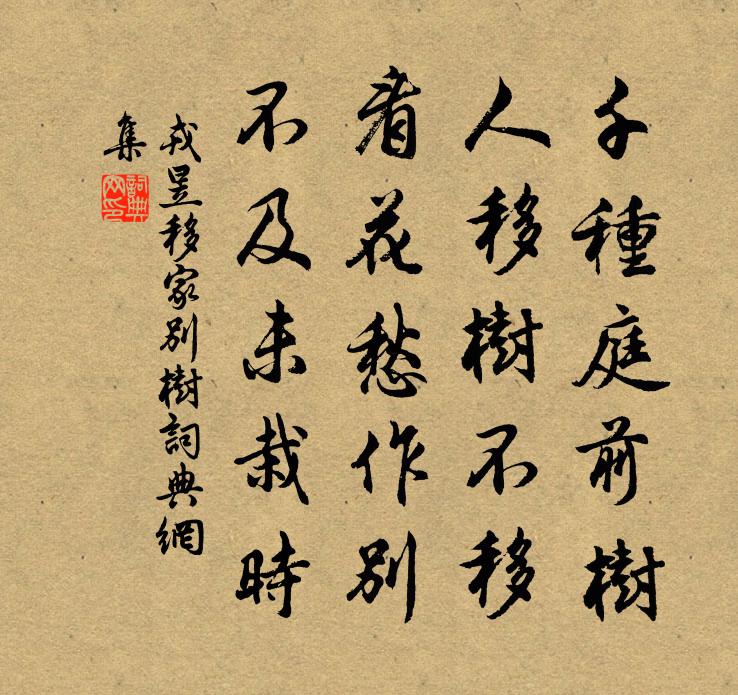 千種庭前樹
人移樹不移
看花愁作別
不及未栽時
戎昱移家別樹詞典網
集
詞典
网印